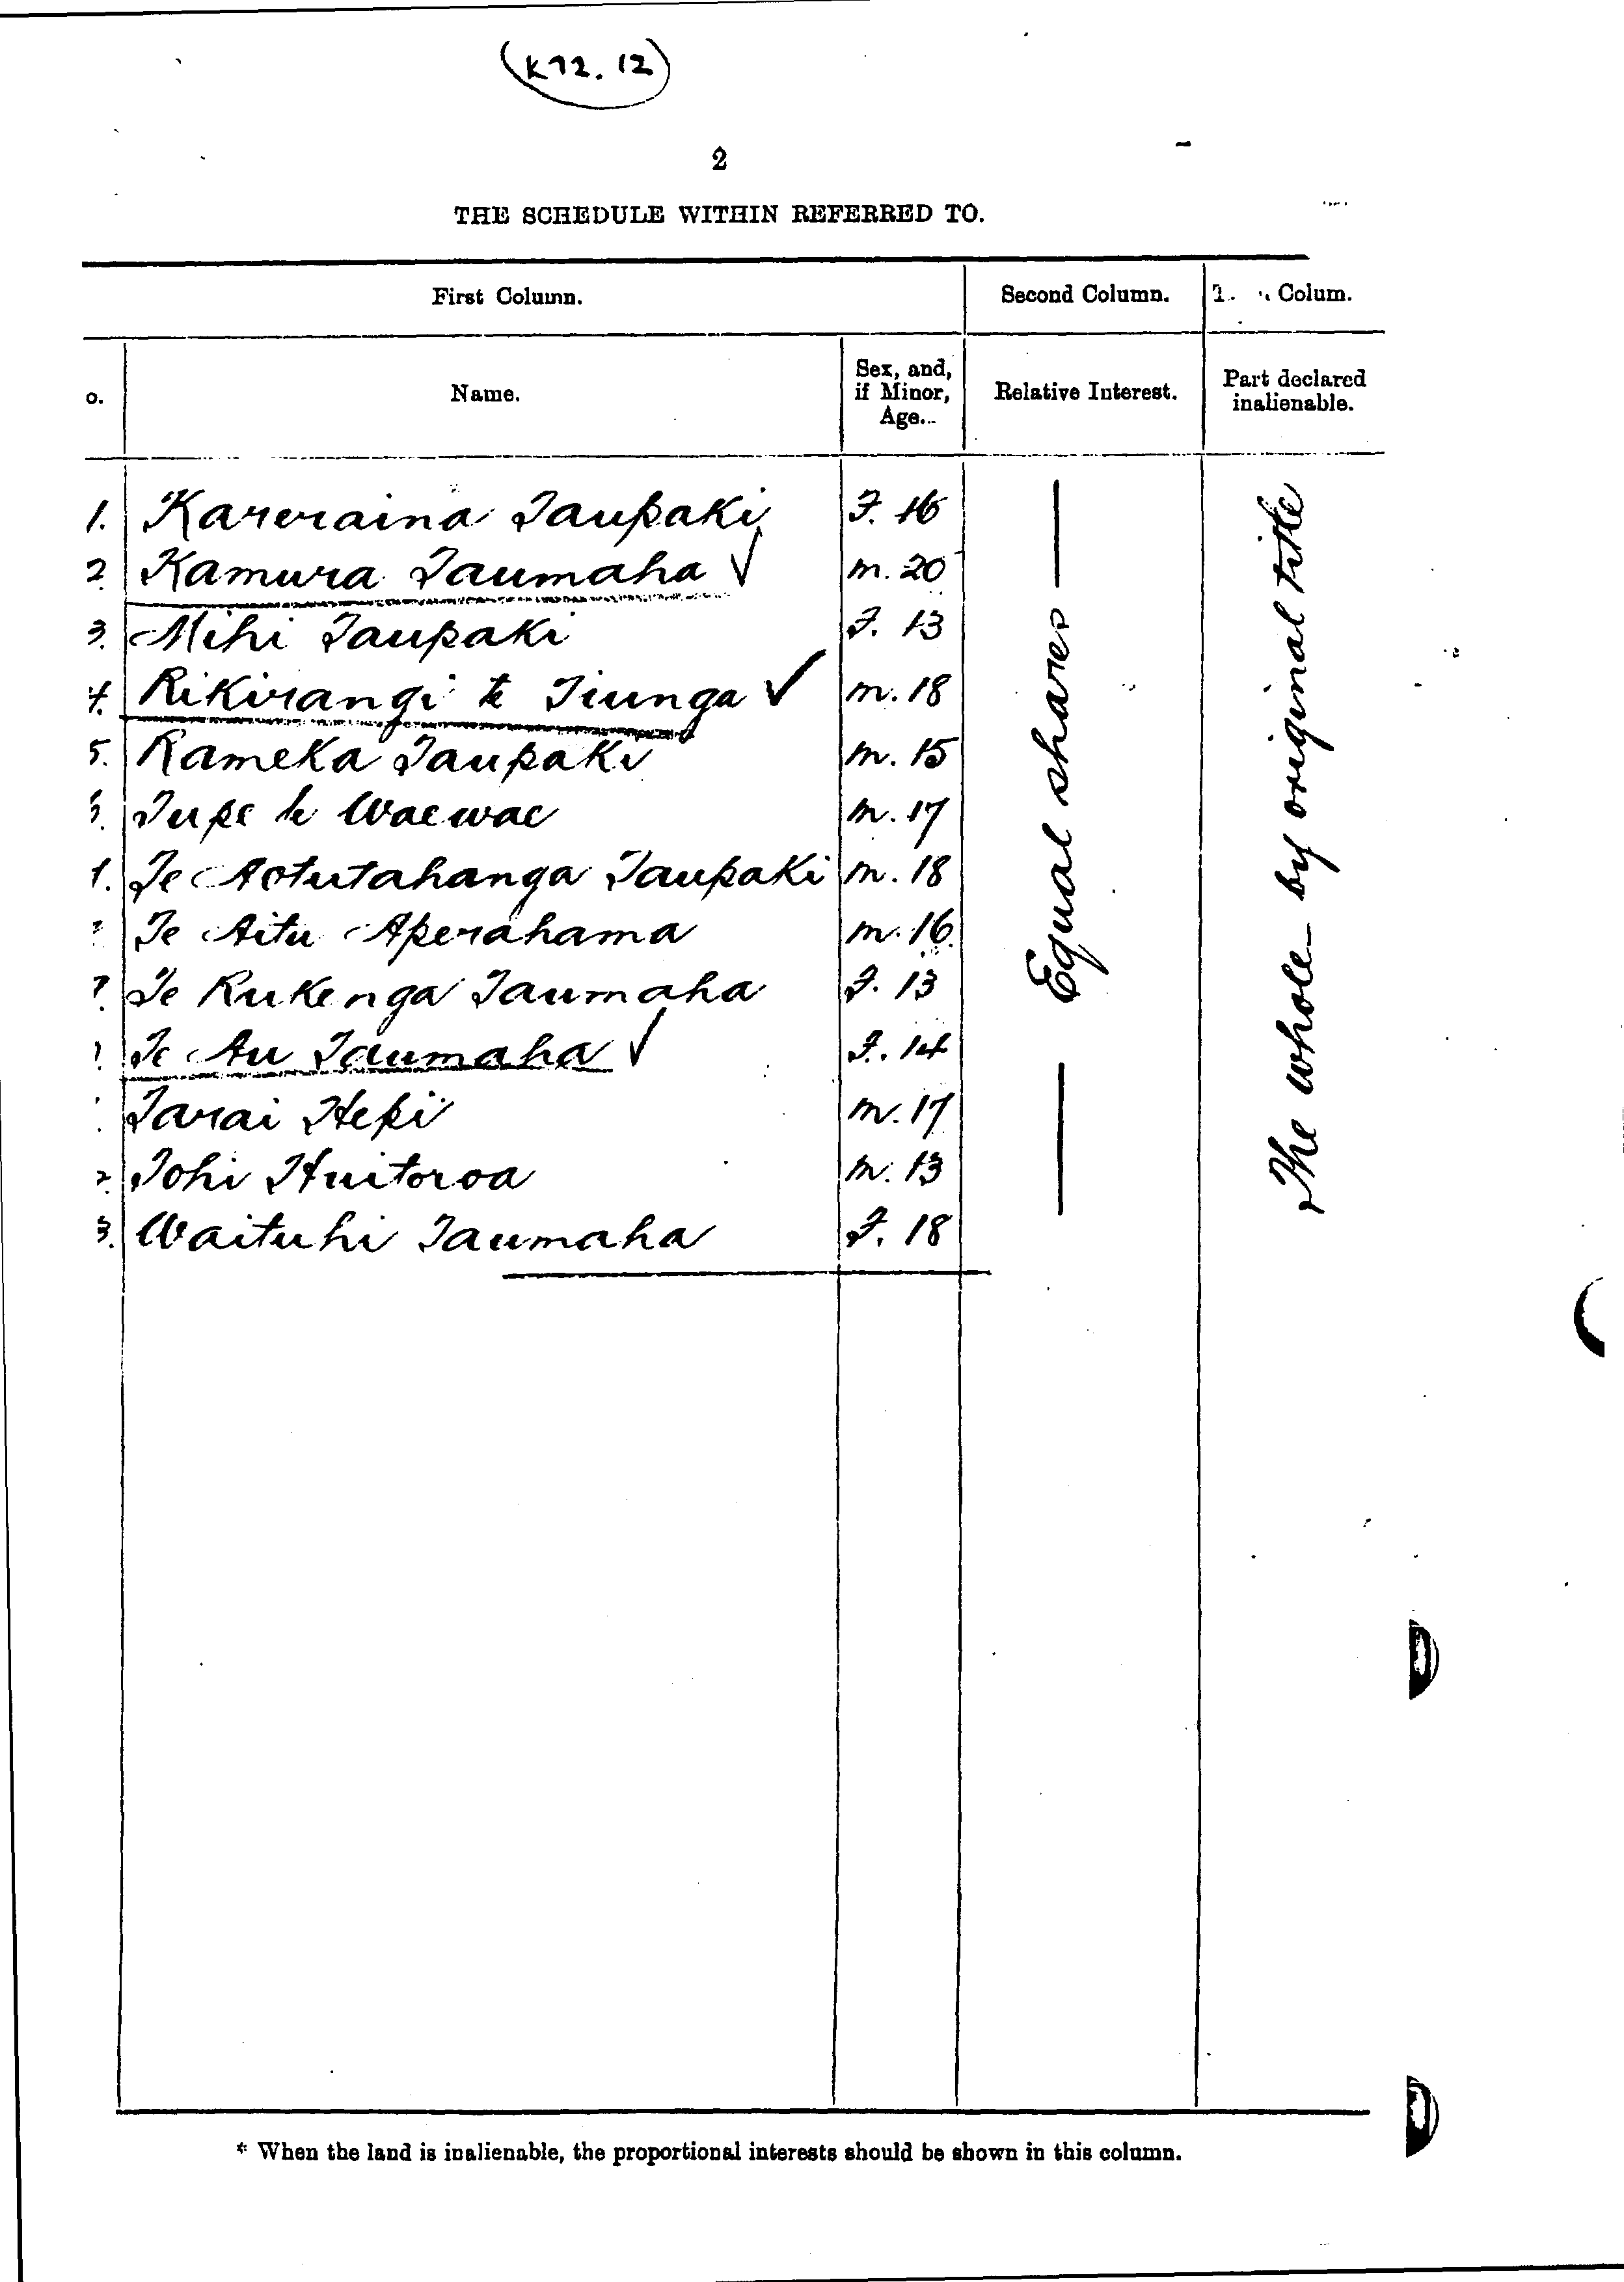 (K72.12)
2
THE SCHEDULE WITHIN REFERRED TO.
First Column. Second Column. Colum.
o. Name. Sex, and, if Minor, Age. Relative Interest. Part declared inalienable.
1. Kareraina Taupaki F. 16
2. Kamura Taumaha ✓ M. 20
3. Mihi Taupaki F. 13
4. Rikirangi te Tiunga ✓ M. 18
5. Rameka Taupaki M. 15
Tupe te Waewae M. 17
Te Aotutahanga Taupaki M. 18
Te Aitu Aperahama M. 16
Te Rukenga Taumaha F. 13
Te Au Taumaha ✓ F. 14
Tarai Hepi M. 17
2. Tohi Huitoroa M. 13
3. Waituhi Taumaha F. 18
Equal shares
The whole by original title
* When the land is inalienable, the proportional interests should be shown in this column.